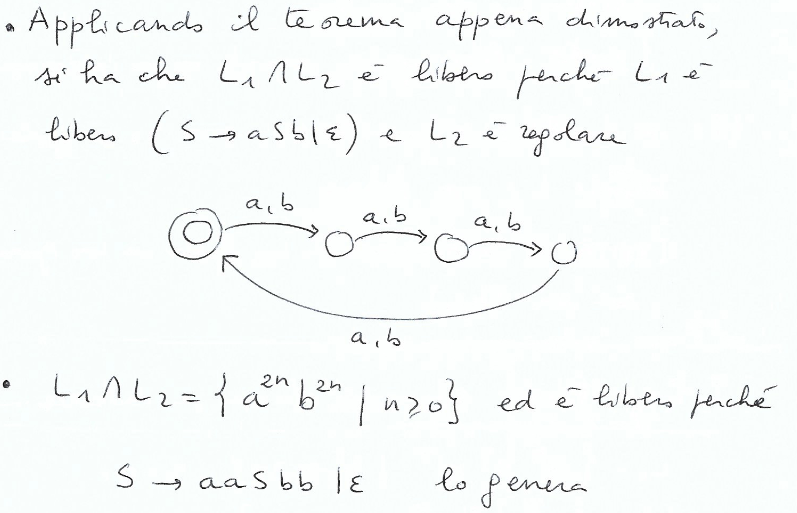 • Applicando il teorema appena dimostrato,
si ha che L₁∩L₂ è libero perché L₁ è
libero (S → aSb|ε) e L₂ è regolare
a,b a,b a,b
a,b
• L₁∩L₂ = {a²ⁿb²ⁿ | n≥0} ed è libero perché
S → aaSbb |ε lo genera